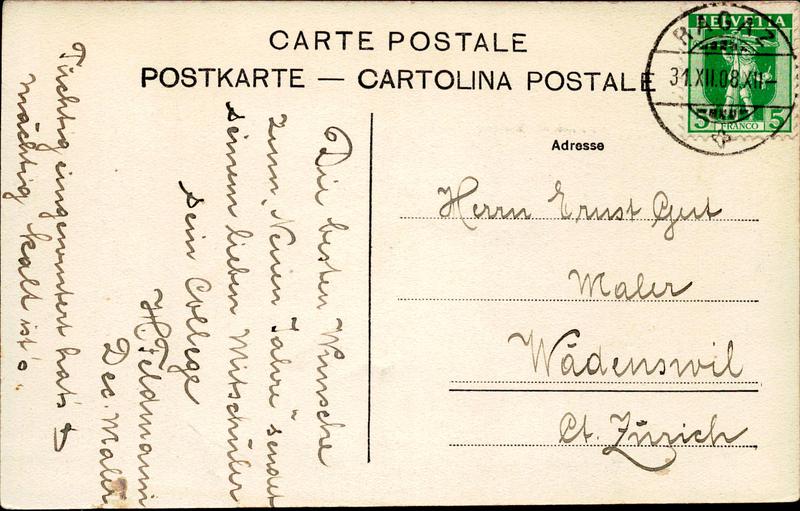 CARTE POSTALE
POSTKARTE — CARTOLINA POSTALE
HELVETIA
RAGAZ
31.XII.08.XII-
5 FRANCO 5
Adresse
Herrn Ernst Gut
Maler
Wädenswil
Ct. Zürich
Die besten Wünsche
zum „Neuen Jahre" sendet
seinem lieben Mitschüler
sein College
H. Feldmann
Dec. Maler
Tüchtig eingewintert hat's &
mächtig kalt ist's.